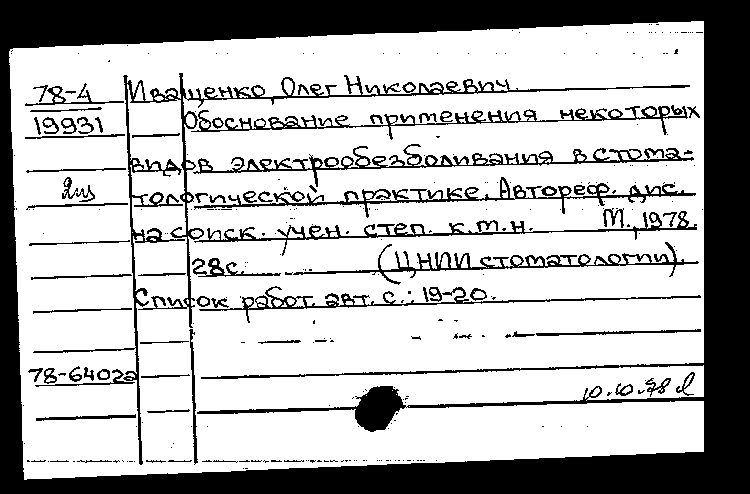 78-4 Иващенко, Олег Николаевич.
19931 Обоснование применения некоторых
видов электрообезболивания в стома-
тологической практике. Автореф. дис.
на соиск. учен. степ. к.м.н. М., 1978.
28с. (ЦНИИ стоматологии).
Список работ. авт. с.: 19-20.
78-6402а
10.10.78